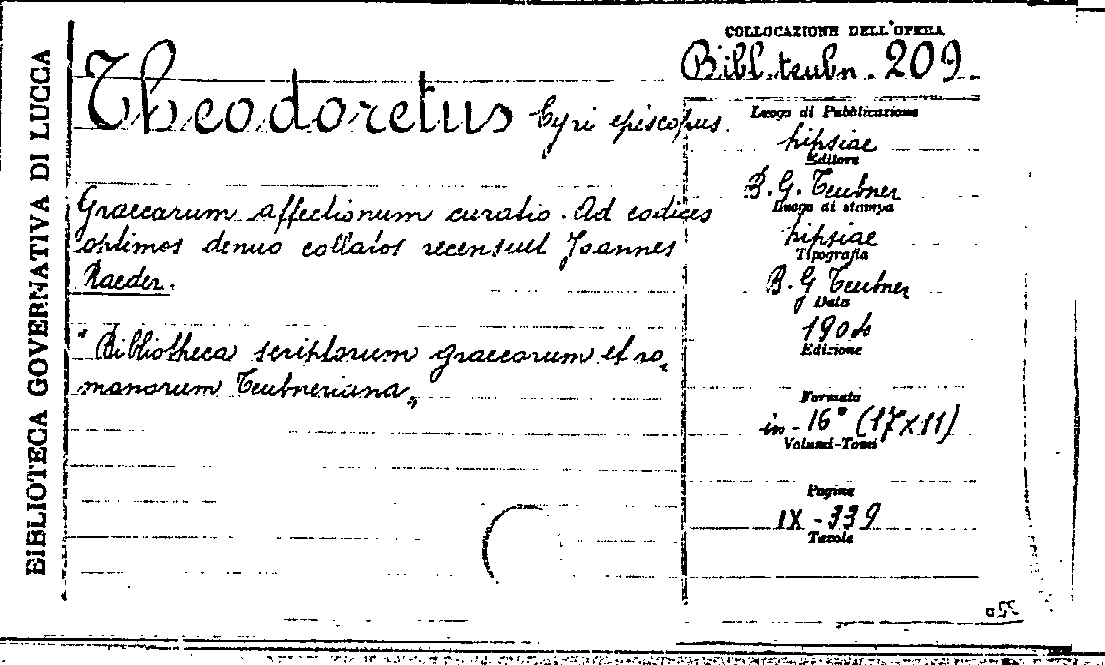 BIBLIOTECA GOVERNATIVA DI LUCCA
Theodoretus Cyri episcopus.
Graecarum affectionum curatio. Ad codices
optimos denuo collatos recensuit Joannes
Raeder.
"Bibliotheca scriptorum graecarum et ro„
manorum Teubneriana„
COLLOCAZIONE DELL'OPERA
Bibl. teubn. 209.
Luogo di Pubblicazione
Lipsiae
Editore
B. G. Teubner
Luogo di stampa
Lipsiae
Tipografia
B. G Teubner
Data
1904
Edizione
Formato
in - 16° (17x11)
Volumi-Tomi
Pagine
IX - 339
Tavole